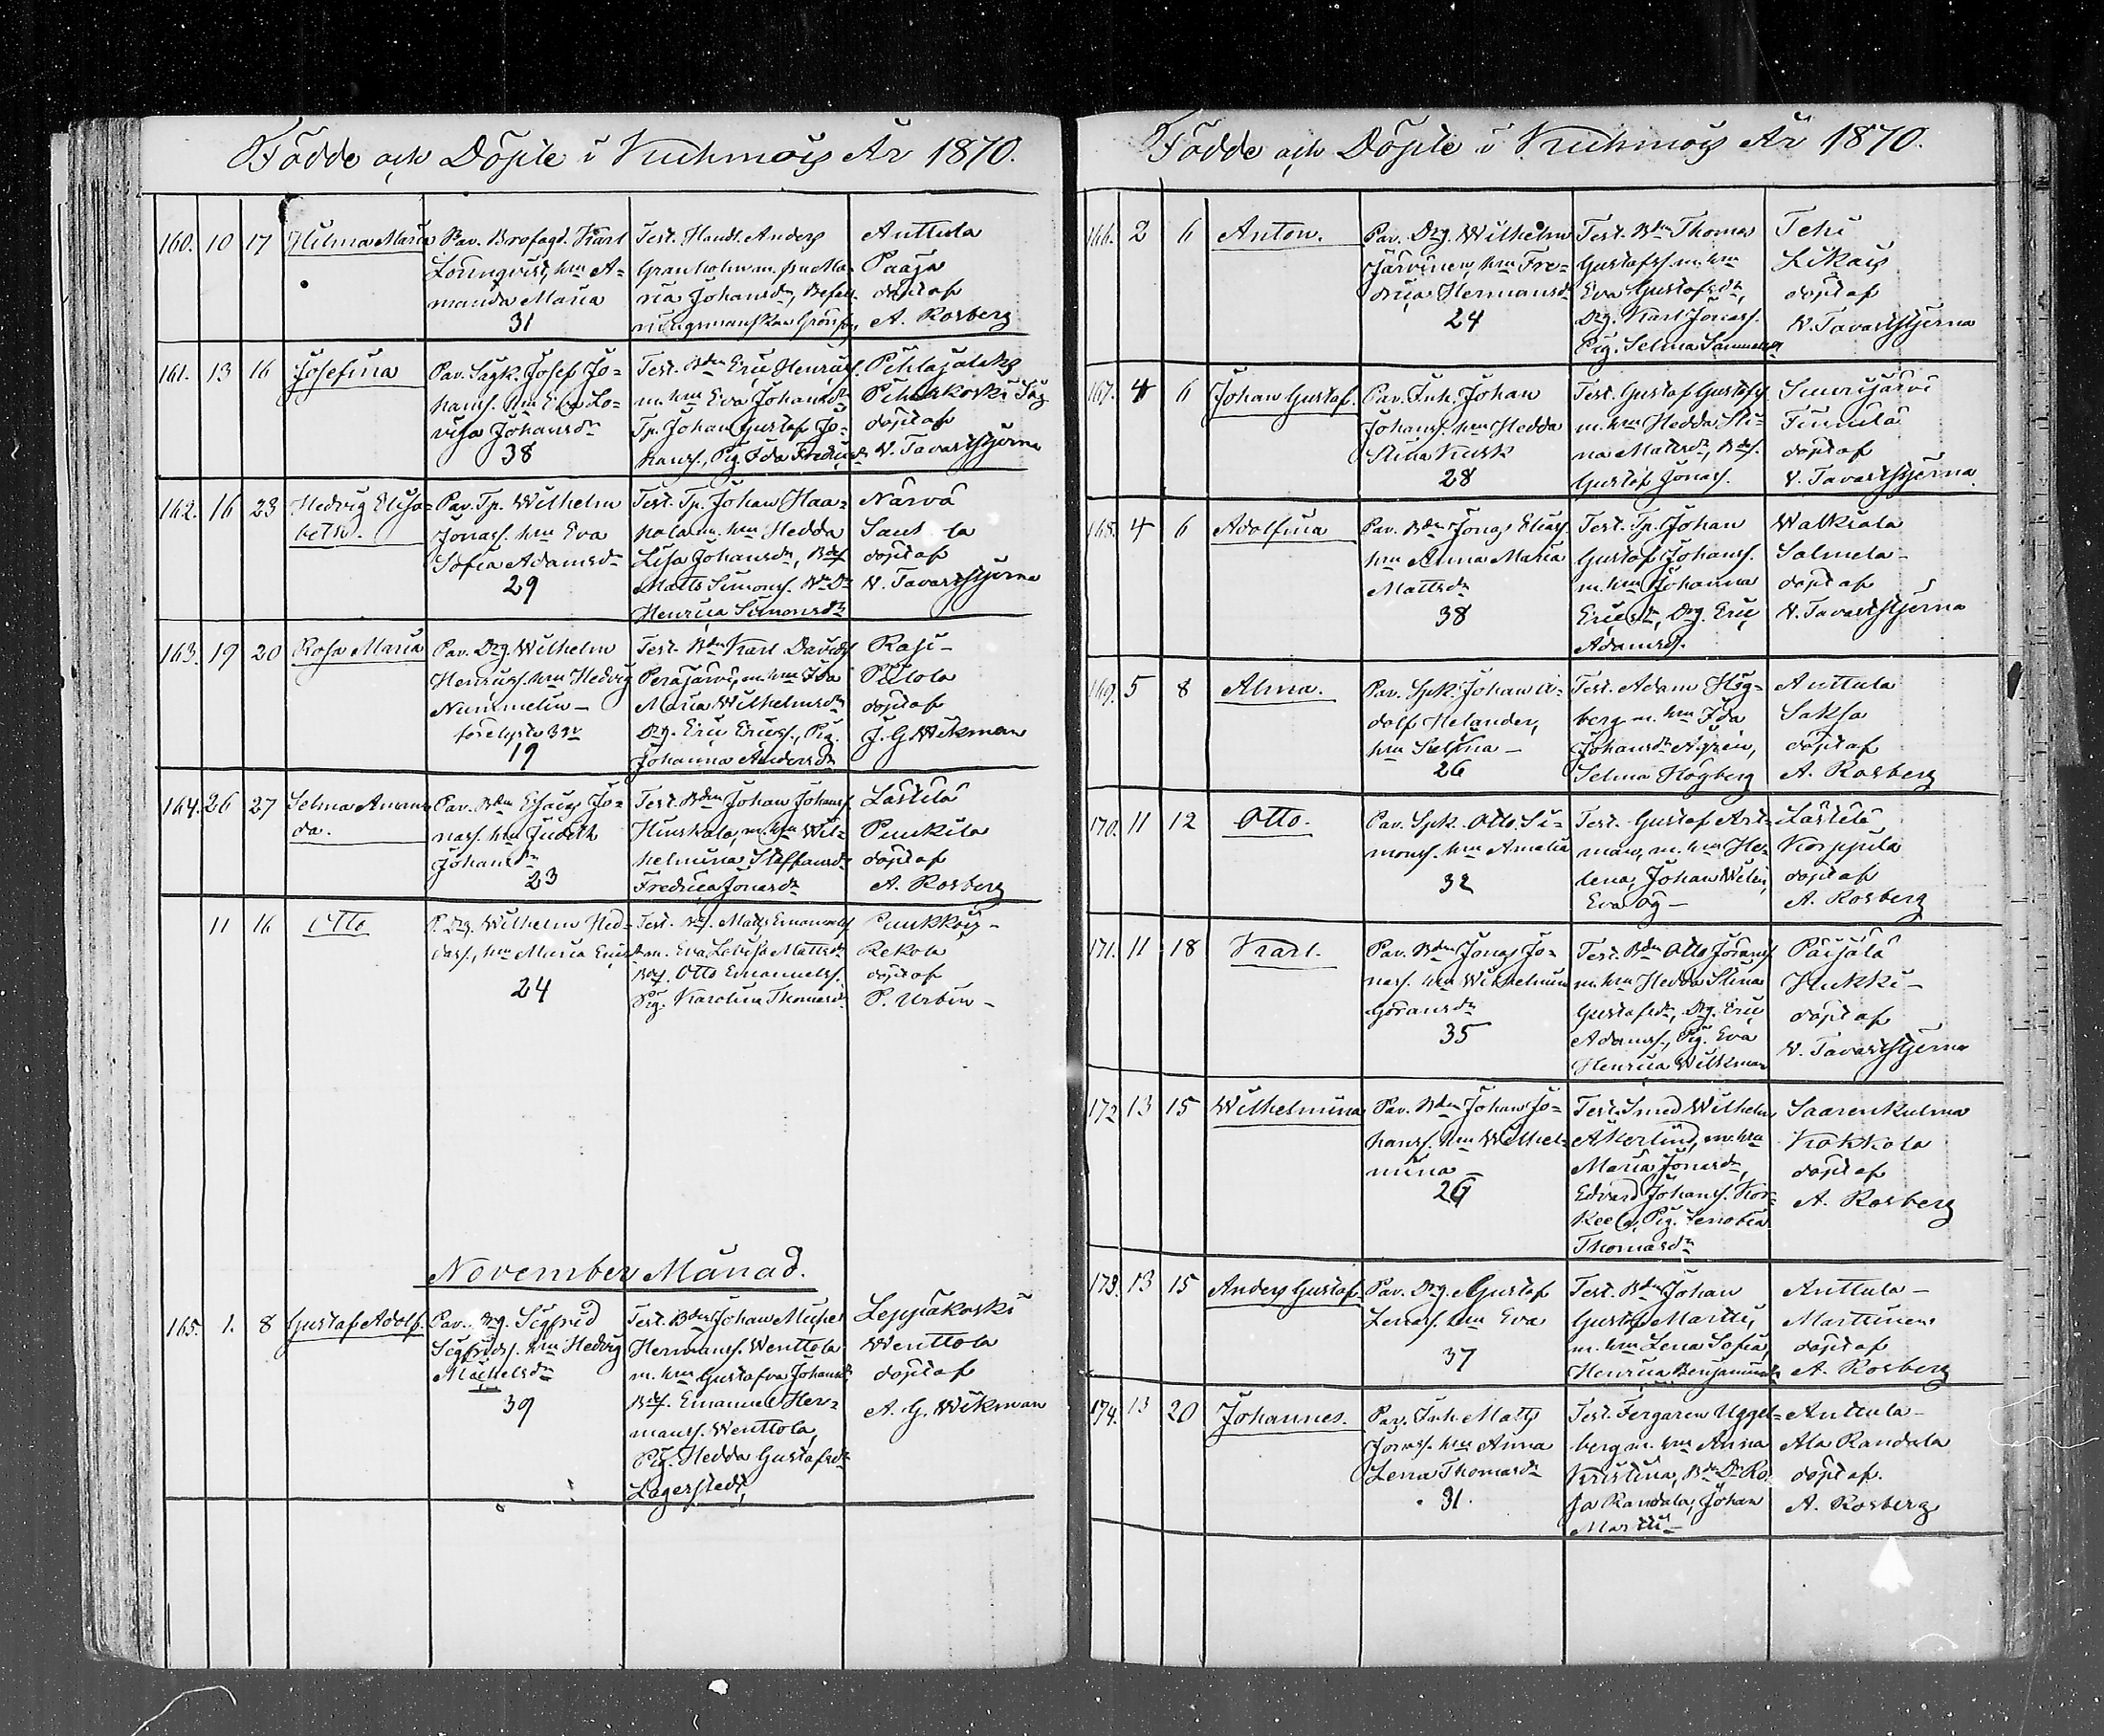 Födde och Döpte i Kuhmois År 1870.
160. 10 17 Hilma Maria
Pav. Karl
Lönnqvist, hru A-
manda Maria
31
Test. Handl. Anders
Granholm m. fru Ma-
ria Johansdr,
Anttula
Paaja
döpt af
A. Rosberg
161. 13 16 Josefina
Pav. Sagk. Josef Jo-
hanss. hru Eva Lo-
visa Johansdr
38
Test. Bdn Eric Henricss.
m. hru Eva Johansdr
Tp. Johan Gustaf Jo-
hanss., Pig. Ida Fredricsdr
Pihlajakoski Såg
döpt af
V. Tavaststjerna
162. 16 23 Hedvig Elisa-
beth.
Pav. Tp. Wilhelm
Jonass. hru Eva
Sofia Adamsdr
29
Test. Tp. Johan Haa-
pala m. hru Hedda
Lisa Johansdr, Bds
Matts Simonss. Bdn Dr
Henrica Simonsdr
Närvä
döpt af
V. Tavaststjerna
163. 19 20 Rosa Maria
Pav. Drg. Wilhelm
Henricss. hru Hedvig
Nummelin –
19
Test. Bdn Karl Davidss
Perajärvi, m. hru Ida
Maria Wilhelmsdr
Drg. Eric Ericss., Pig.
Johanna Andersdr
Rasi –
döpt af
J. G. Wikman
164. 26 27 Selma Aman-
da.
Pav. Bdn Esaias Jo-
nass. hru Judith
Johansdr
23
Test. Bdn Johan Johanss
m. hru Wil-
helmina Staffansdr
Fredrica Jonasdr
Lästilä
Punkila
döpt af
A. Rosberg
11 16 Otto
P. Drg. Wilhelm Hed-
hru Maria Ericsdr
24
Test. Bds. Matts Emanuelss
m. Eva Lovisa Mattsdr
Bds. Otto Emanuelss.
Pig. Karolina Thomasdr
Puukkois –
Rekola
döpt af
P. Urbin –
November Månad.
165. 1. 8 Gustaf Adolf.
Pav. Drg. Sigfrid
Sigfridss. hru Hedvig
Michelsdr
39
Test. Bdn Johan Michel
Hermanss. Wenttola
m. hru Gustafva Johansdr
Bds. Emanuel Her-
manss. Wenttola,
Pig. Hedda Gustafsdr
Lagerstedt,
Leppäkoski
Wenttola
döpt af
A. G. Wikman
Födde och Döpte i Kuhmois År 1870.
166. 2 6 Anton.
Pav. Drg. Wilhelm
Järvinen, hru Fre-
drica Hermansdr
24
Test. Bdn Thomas
Gustafss. m. hru
Eva Gustafsdr,
Drg. Karl Jonass.
Pig. Selma Samuelsdr
Tehi
Likais
döpt af
V. Tavaststjerna
167. 4 6 Johan Gustaf.
Pav. Inh. Johan
Johanss. hru Hedda
Stina Kusk
28
Test. Gustaf Gustafss
m. hru Hedda Sti-
na Mattsdr, Bds.
Gustaf Jonass.
Sinervjärvi
döpt af
V. Tavaststjerna
168. 4 6 Adolfina
Pav. Bdn Jonas Eliass
hru Anna Maria
Mattsdr
38
Test. Tp. Johan
Gustaf Johanss.
m. hru Johanna
Ericsdr, Drg. Eric
Adamss.
Walkiala
Salmela –
döpt af
V. Tavaststjerna
169. 5 8 Alma.
Pav. Spk. Johan A-
dolf Helander,
hru Selina –
26
Test. Adam Hög-
berg m. hru Ida
Johansdr Ahrén,
Selma Högberg
Anttula
Saksa
döpt af
A. Rosberg
170. 11 12 Otto.
Pav. Spk. Otto Si-
monss. hru Amalia
32
Test. Gustaf Ast-
man, m. hru He-
lena, Johan
Lästilä
Korpjula
döpt af
A. Rosberg
171. 11 18 Karl.
Pav. Bdn Jonas Jo-
nass. hru Wilhelmina
Göransdr
35
Test. Bdn Otto Göranss
m. hru Hedda Stina
Gustafsdr, Drg. Eric
Adamss., Pig. Eva
Henrica Wilkman
Päijälä
Hukki –
döpt af
V. Tavaststjerna
172. 13 15 Wilhelmina
Pav. Bdn Johan Jo-
hanss. hru Wilhel-
mina –
26
Test. Smed Wilhelm
Åkerlind, m. hru
Maria Jonasdr,
Edvard Johanss. Kor-
Pig. Senobia
Thomasdr
Saarenkulma
Kokkola
döpt af
A. Rosberg
173. 13 15 Anders Gustaf
Pav. Drg. Gustaf
hru Eva
37
Test. Bdn Johan
Gustaf Martti,
m. hru Lena Sofia,
Henrica Benjaminsdr
Anttula –
Marttinen
döpt af
A. Rosberg
174. 13 20 Johannes.
Pav. Inh. Matts
Jonass. hru Anna
Lena Thomasdr
31.
Test. Fergaren Uggel-
berg m. hru Anna
Kristina, Bdn Dr Ro-
sa Randala, Johan
Martti –
Anttula –
Ala Randala
döpt af
A. Rosberg